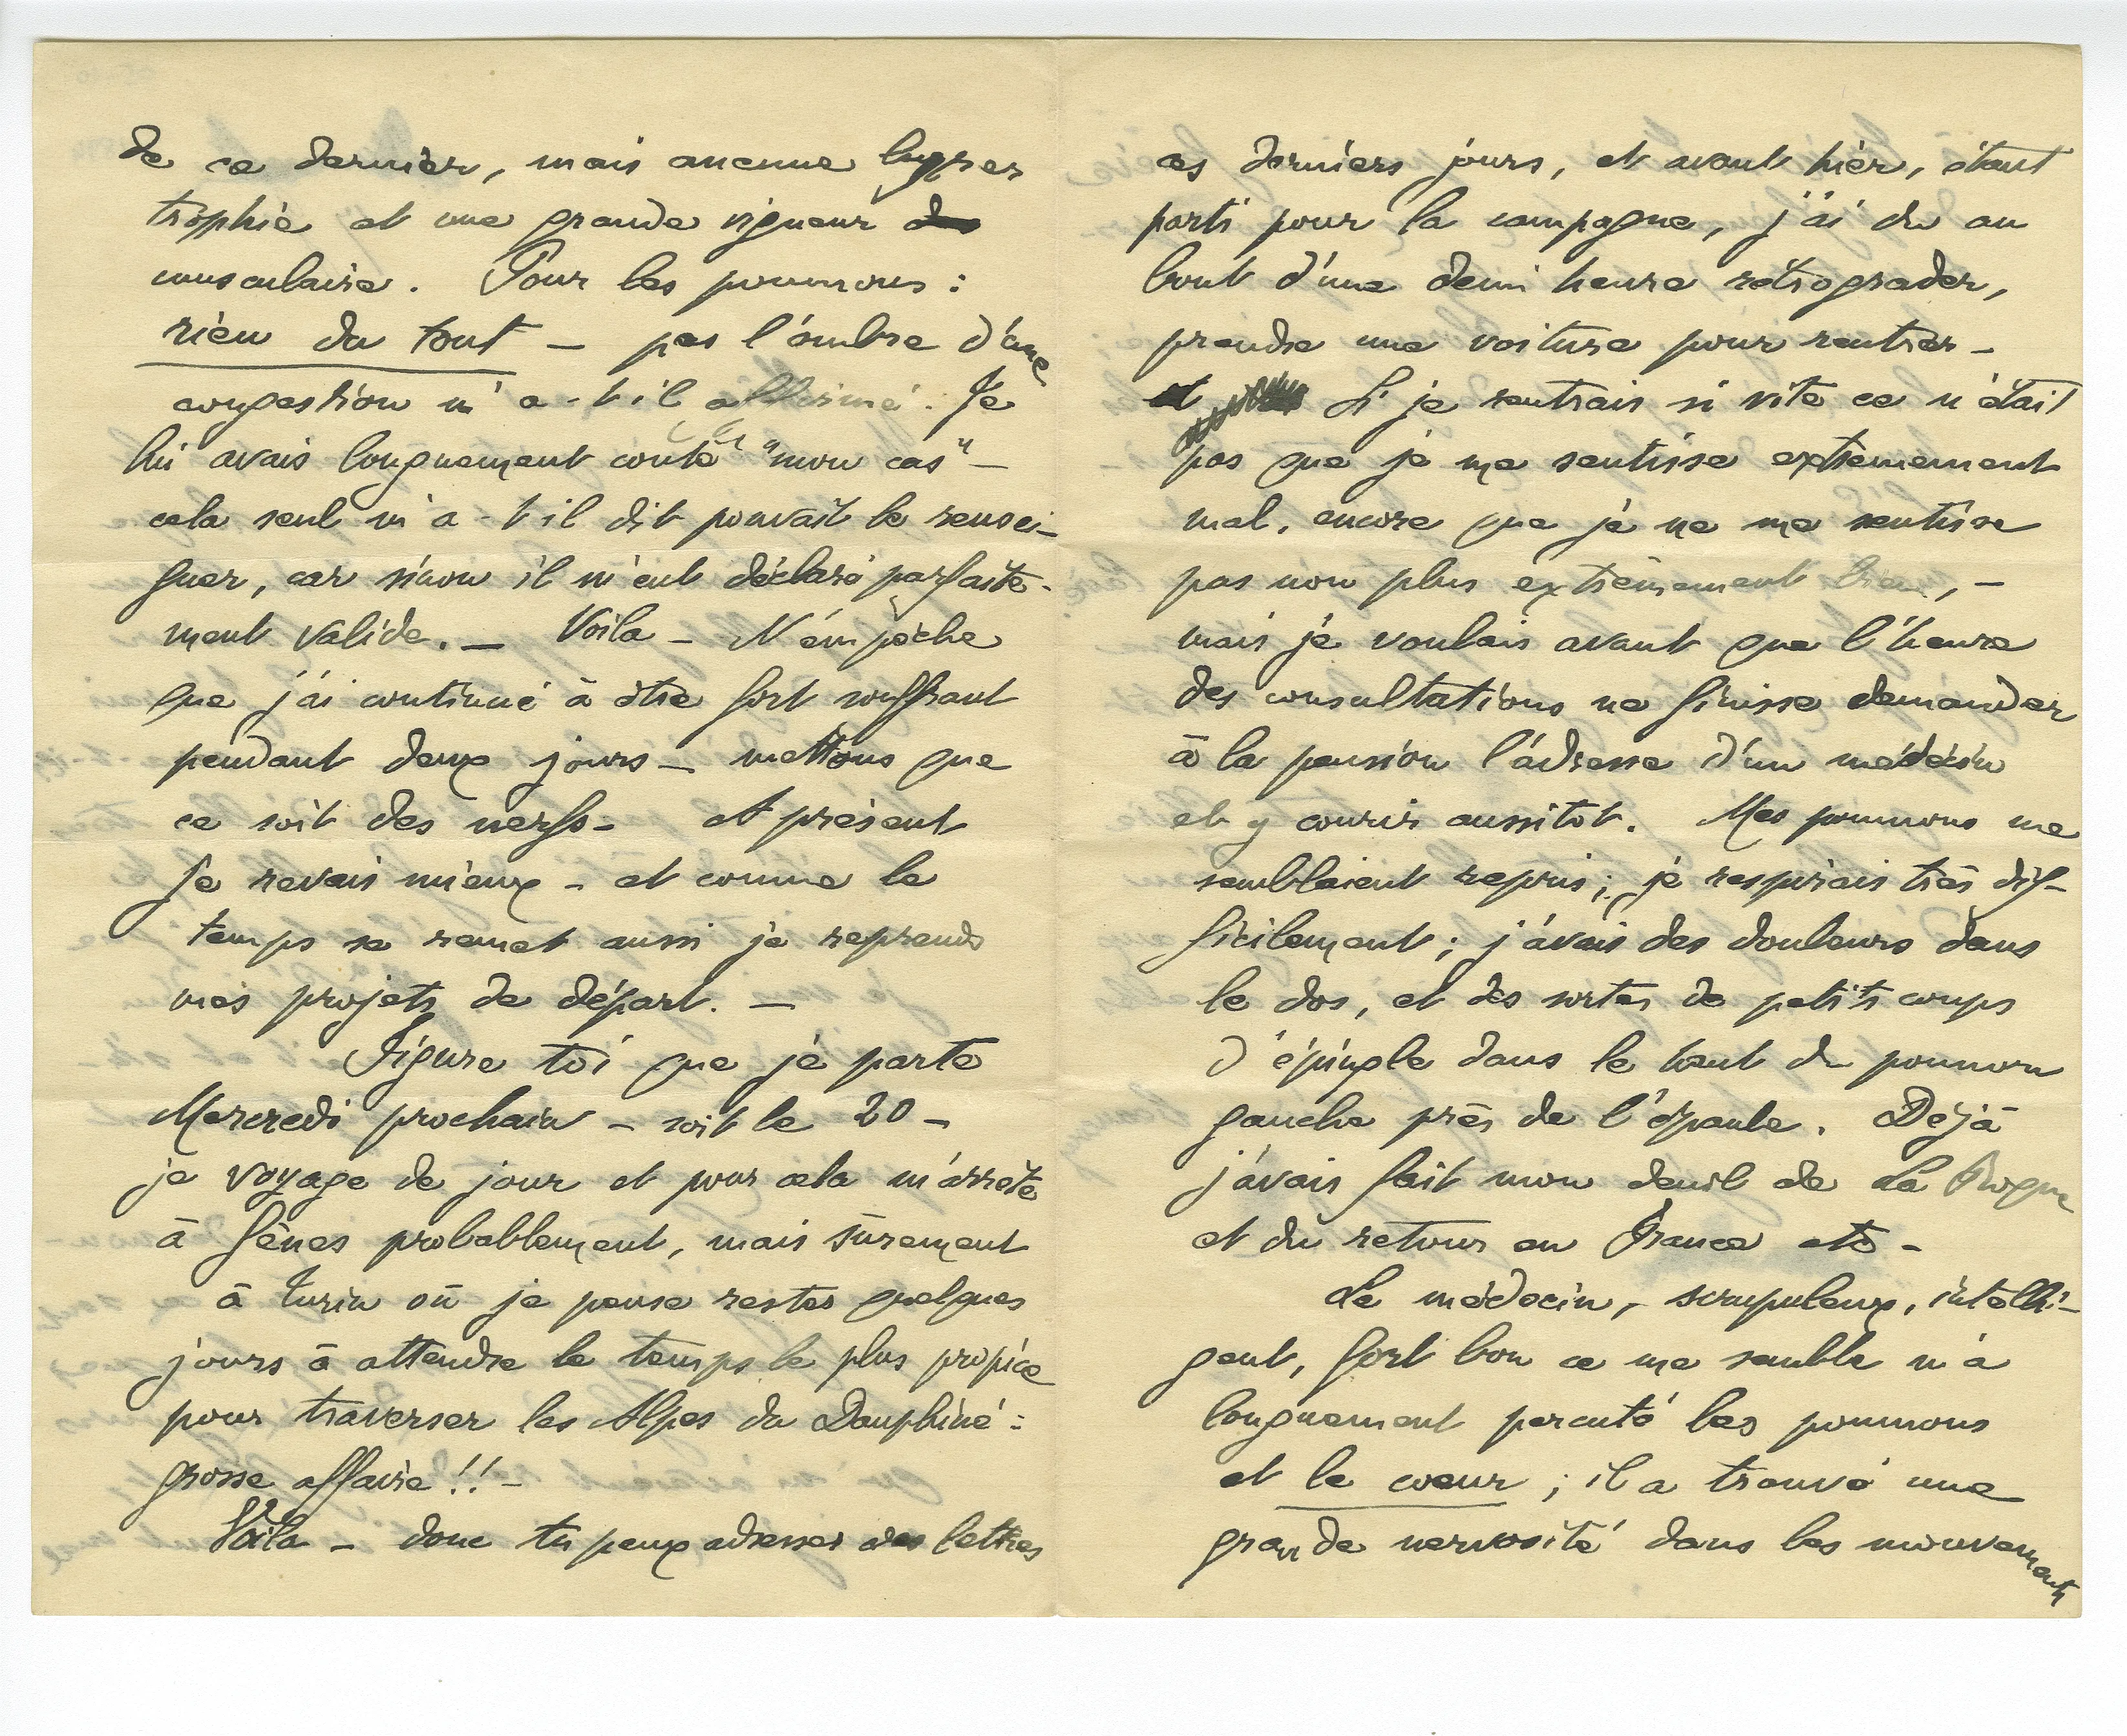 de ce dernier, mais aucune hyper
trophie et une grande vigueur de
musculaire. Pour les poumons :
rien du tout — pas l'ombre d'une
congestion m'a-t-il affirmé. Je
lui avais longuement conté "mon cas" —
cela seul m'a-t-il dit pouvait le rensei-
gner, car sinon il m'eut déclaré parfaite-
ment valide. — Voila — N'empèche
que j'ai continué à être fort souffrant
pendant deux jours — mettons que
ce soit des nerfs — et présent
je revais mieux — et comme le
temps se remet aussi je reprends
mes projets de départ. —
Figure toi que je parte
Mercredi prochain — soit le 20 —
je voyage de jour et pour cela m'arrête
à Gênes probablement, mais sûrement
à Turin où je pense rester quelques
jours à attendre le temps le plus propice
pour traverser les Alpes du Dauphiné :
grosse affaire !! —
Voila — donc tu peux adresser des lettres
ces derniers jours, et avant hier, étant
parti pour la campagne, j'ai du au
bout d'une demi heure rétrograder,
prendre une voiture pour rentrer —
et Si je rentrais si vite ce n'était
pas que je me sentisse extrêmement
mal, encore que je ne me sentisse
pas non plus extrêmement bien, —
mais je voulais avant que l'heure
des consultations ne finisse demander
à la pension l'adresse d'un médecin
et y courir aussitot. Mes poumons me
semblaient repris ; je respirais très dif-
ficilement ; j'avais des douleurs dans
le dos, et des sortes de petits coups
d'épingle dans le haut du poumon
gauche près de l'épaule. Déjà
j'avais fait mon deuil de La Roque
et du retour en France etc —
Le médecin, scrupuleux, intelli-
gent, fort bon ce me semble m'a
longuement percuté les poumons
et le cœur ; il a trouvé une
grande nervosité dans les mouvements